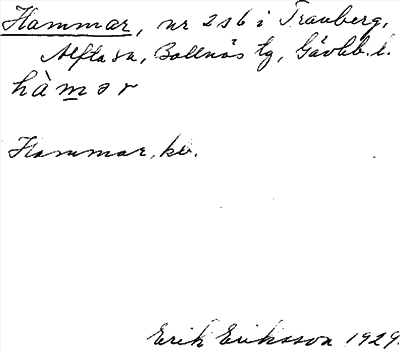 Hammar, nr 2 s6 i Tranberg,
Alfta sn, Bollnäs tg, Gävleb. l.
hàmər
Hammar, kv.
Erik Eriksson 1929.